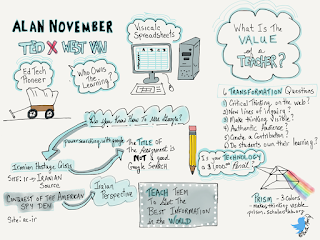 ALAN NOVEMBER
TED X WEST VAN
EdTech
Pioneer
Who Owns
the Learning?
Visicalc
Spreadsheets
What Is The
VALUE
of a
TEACHER?
6 TRANSFORMATION Questions
1) Critical Thinking on the web?
2) New lines of Inquiry?
3) Make thinking Visible?
4) Authentic Audience?
5) Create a Contribution?
6) Do students own their learning?
Do you Know How To Use Google?
powersearchingwithgoogle
The TITLE OF
The Assignment is
NOT a good
Google Search
Iranian Hostage Crisis
Site:ir → IRANIAN
Source
Conquest of the American
Spy Den
Site:ac.ir
Iraian
Perspective
TEACH THEM
To GET The
BEST Information
in the WORLD
Is your TECHNOLOGY
a $1000 Pencil?
PRISM - 3 colors
- makes thinking visible
prism.scholarslab.org